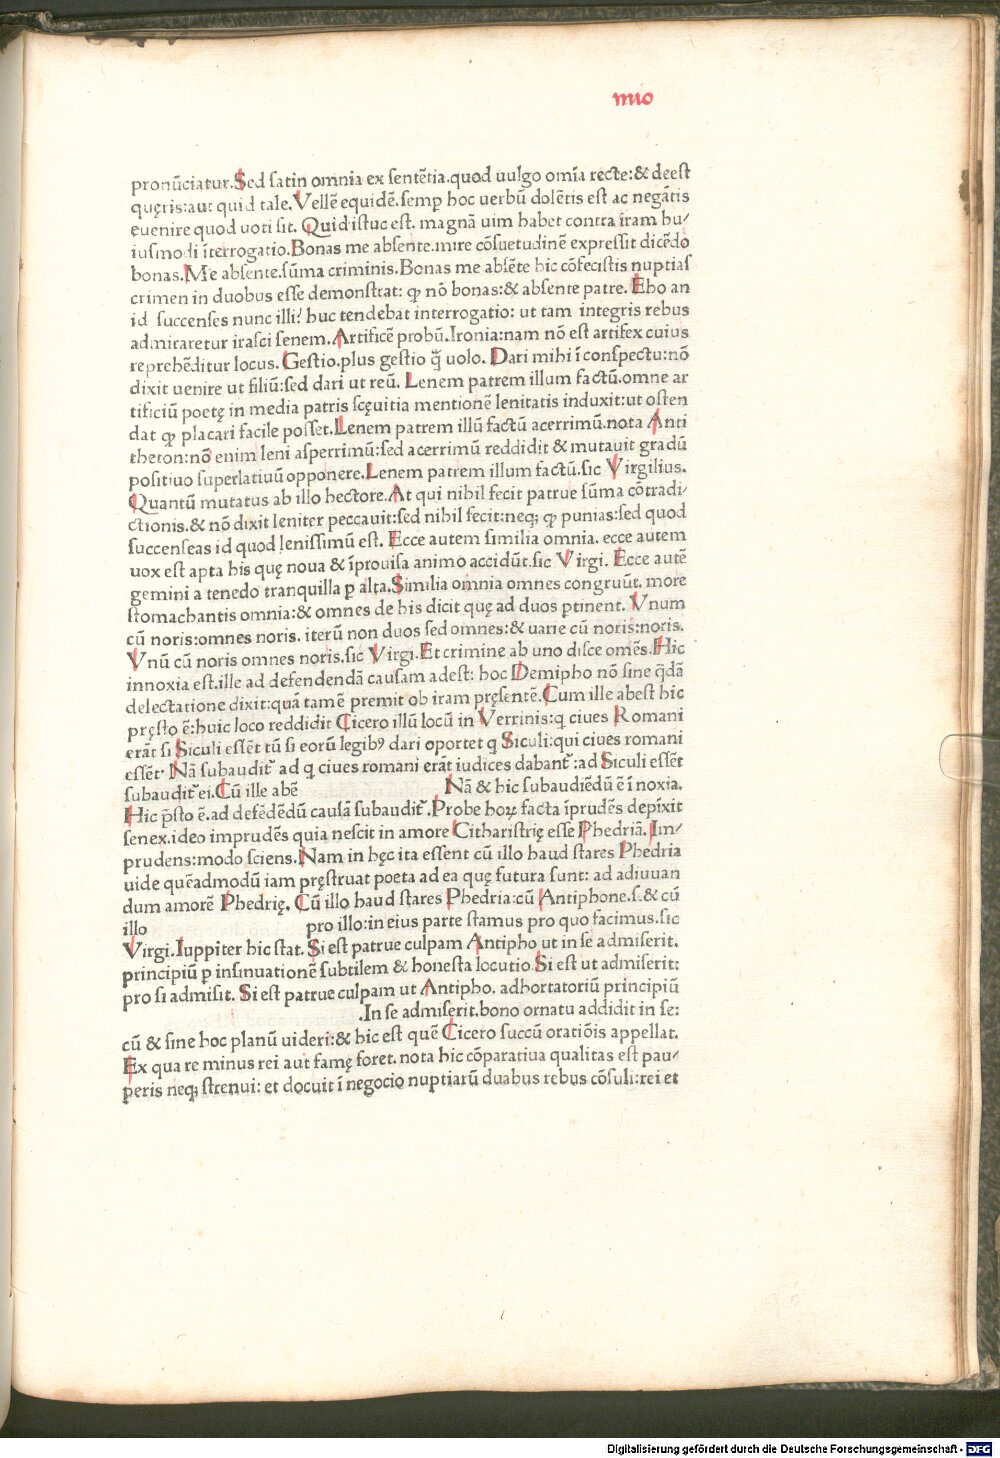 mio
pronūciatur.Sed satin omnia ex sentētia.quod uulgo omīa recte:& deest
quęris:aut quid tale.Vellē equidē.semp hoc uerbū dolētis est ac negātis
euenire quod uoti sit. Quid istuc est. magnā uim habet contra iram hu/
iusmodi īterrogatio.Bonas me absente.mire cōsuetudinē expressit dicēdo
bonas.Me absente.sūma criminis.Bonas me absēte hic cōfecistis nuptias
crimen in duobus esse demonstrat: ꝙ nō bonas:& absente patre. Eho an
id succenses nunc illi? huc tendebat interrogatio: ut tam integris rebus
admiraretur irasci senem. Artificē probū.Ironia:nam nō est artifex cuius
reprehēditur locus. Gestio.plus gestio q̄ uolo. Dari mihi ī conspectu:nō
dixit uenire ut filiū:sed dari ut reū. Lenem patrem illum factū.omne ar
tificiū poetę in media patris scęuitia mentionē lenitatis induxit:ut osten
dat ꝙ placari facile posset.Lenem patrem illū factū acerrimū.nota Anti
theton:nō enim leni asperrimū:sed acerrimū reddidit & mutauit gradū
positiuo superlatiuū opponere.Lenem patrem illum factū.sic Virgilius.
Quantū mutatus ab illo hectore.At qui nihil fecit patrue sūma cōtradi/
ctionis.& nō dixit leniter peccauit:sed nihil fecit:neq; ꝙ punias:sed quod
succenseas id quod lenissimū est. Ecce autem similia omnia. ecce autem
uox est apta his quę noua & īprouisa animo accidūt.sic Virgi. Ecce autē
gemini a tenedo tranquilla p alta.Similia omnia omnes congruūt. more
stomachantis omnia:& omnes de his dicit quę ad duos ptinent. Vnum
cū noris:omnes noris. iterū non duos sed omnes:& uarie cū noris:noris.
Vnū cū noris omnes noris.sic Virgi.Et crimine ab uno disce omēs.Hic
innoxia est.ille ad defendendā causam adest: hoc Demipho nō sine q̄dā
delectatione dixit:quā tamē premit ob iram pręsentē.Cum ille abest hic
pręsto ē:huic loco reddidit Cicero illū locū in Verrinis:q ciues Romani
erāt si Siculi essēt tū si eorū legibꝰ dari oportet q Siculi:qui ciues romani
essēt· Nā subaudit̄ ad q ciues romani erāt iudices dabant̄:ad Siculi essēt
subaudit̄ ei.Cū ille abē Nā & hic subaudiēdū ē ī noxia.
Hic p̄sto ē.ad defēdēdū causā subaudit̄.Probe hoꝝ facta īprudēs depīxit
senex.ideo imprudēs quia nescit in amore Citharistrię esse Phedriā. Im/
prudens:modo sciens.Nam in hęc ita essent cū illo haud stares Phedria
uide quēadmodū iam pręstruat poeta ad ea quę futura sunt: ad adiuuan
dum amorē Phedrię. Cū illo haud stares Phedria:cū Antiphone.s.& cū
illo pro illo:in eius parte stamus pro quo facimus.sic
Virgi.Iuppiter hic stat. Si est patrue culpam Antipho ut in se admiserit.
principiū p insinuationē subtilem & honesta locutio Si est ut admiserit:
pro si admisit. Si est patrue culpam ut Antipho. adhortatoriū principiū
.In se admiserit.bono ornatu addidit in se:
cū & sine hoc planū uideri:& hic est quē Cicero succū oratiōis appellat.
Ex qua re minus rei aut famę foret. nota hic cōparatiua qualitas est pau/
peris neq; strenui: et docuit ī negocio nuptiarū duabus rebus cōsuli:rei et
Digitalisierung gefördert durch die Deutsche Forschungsgemeinschaft - DFG